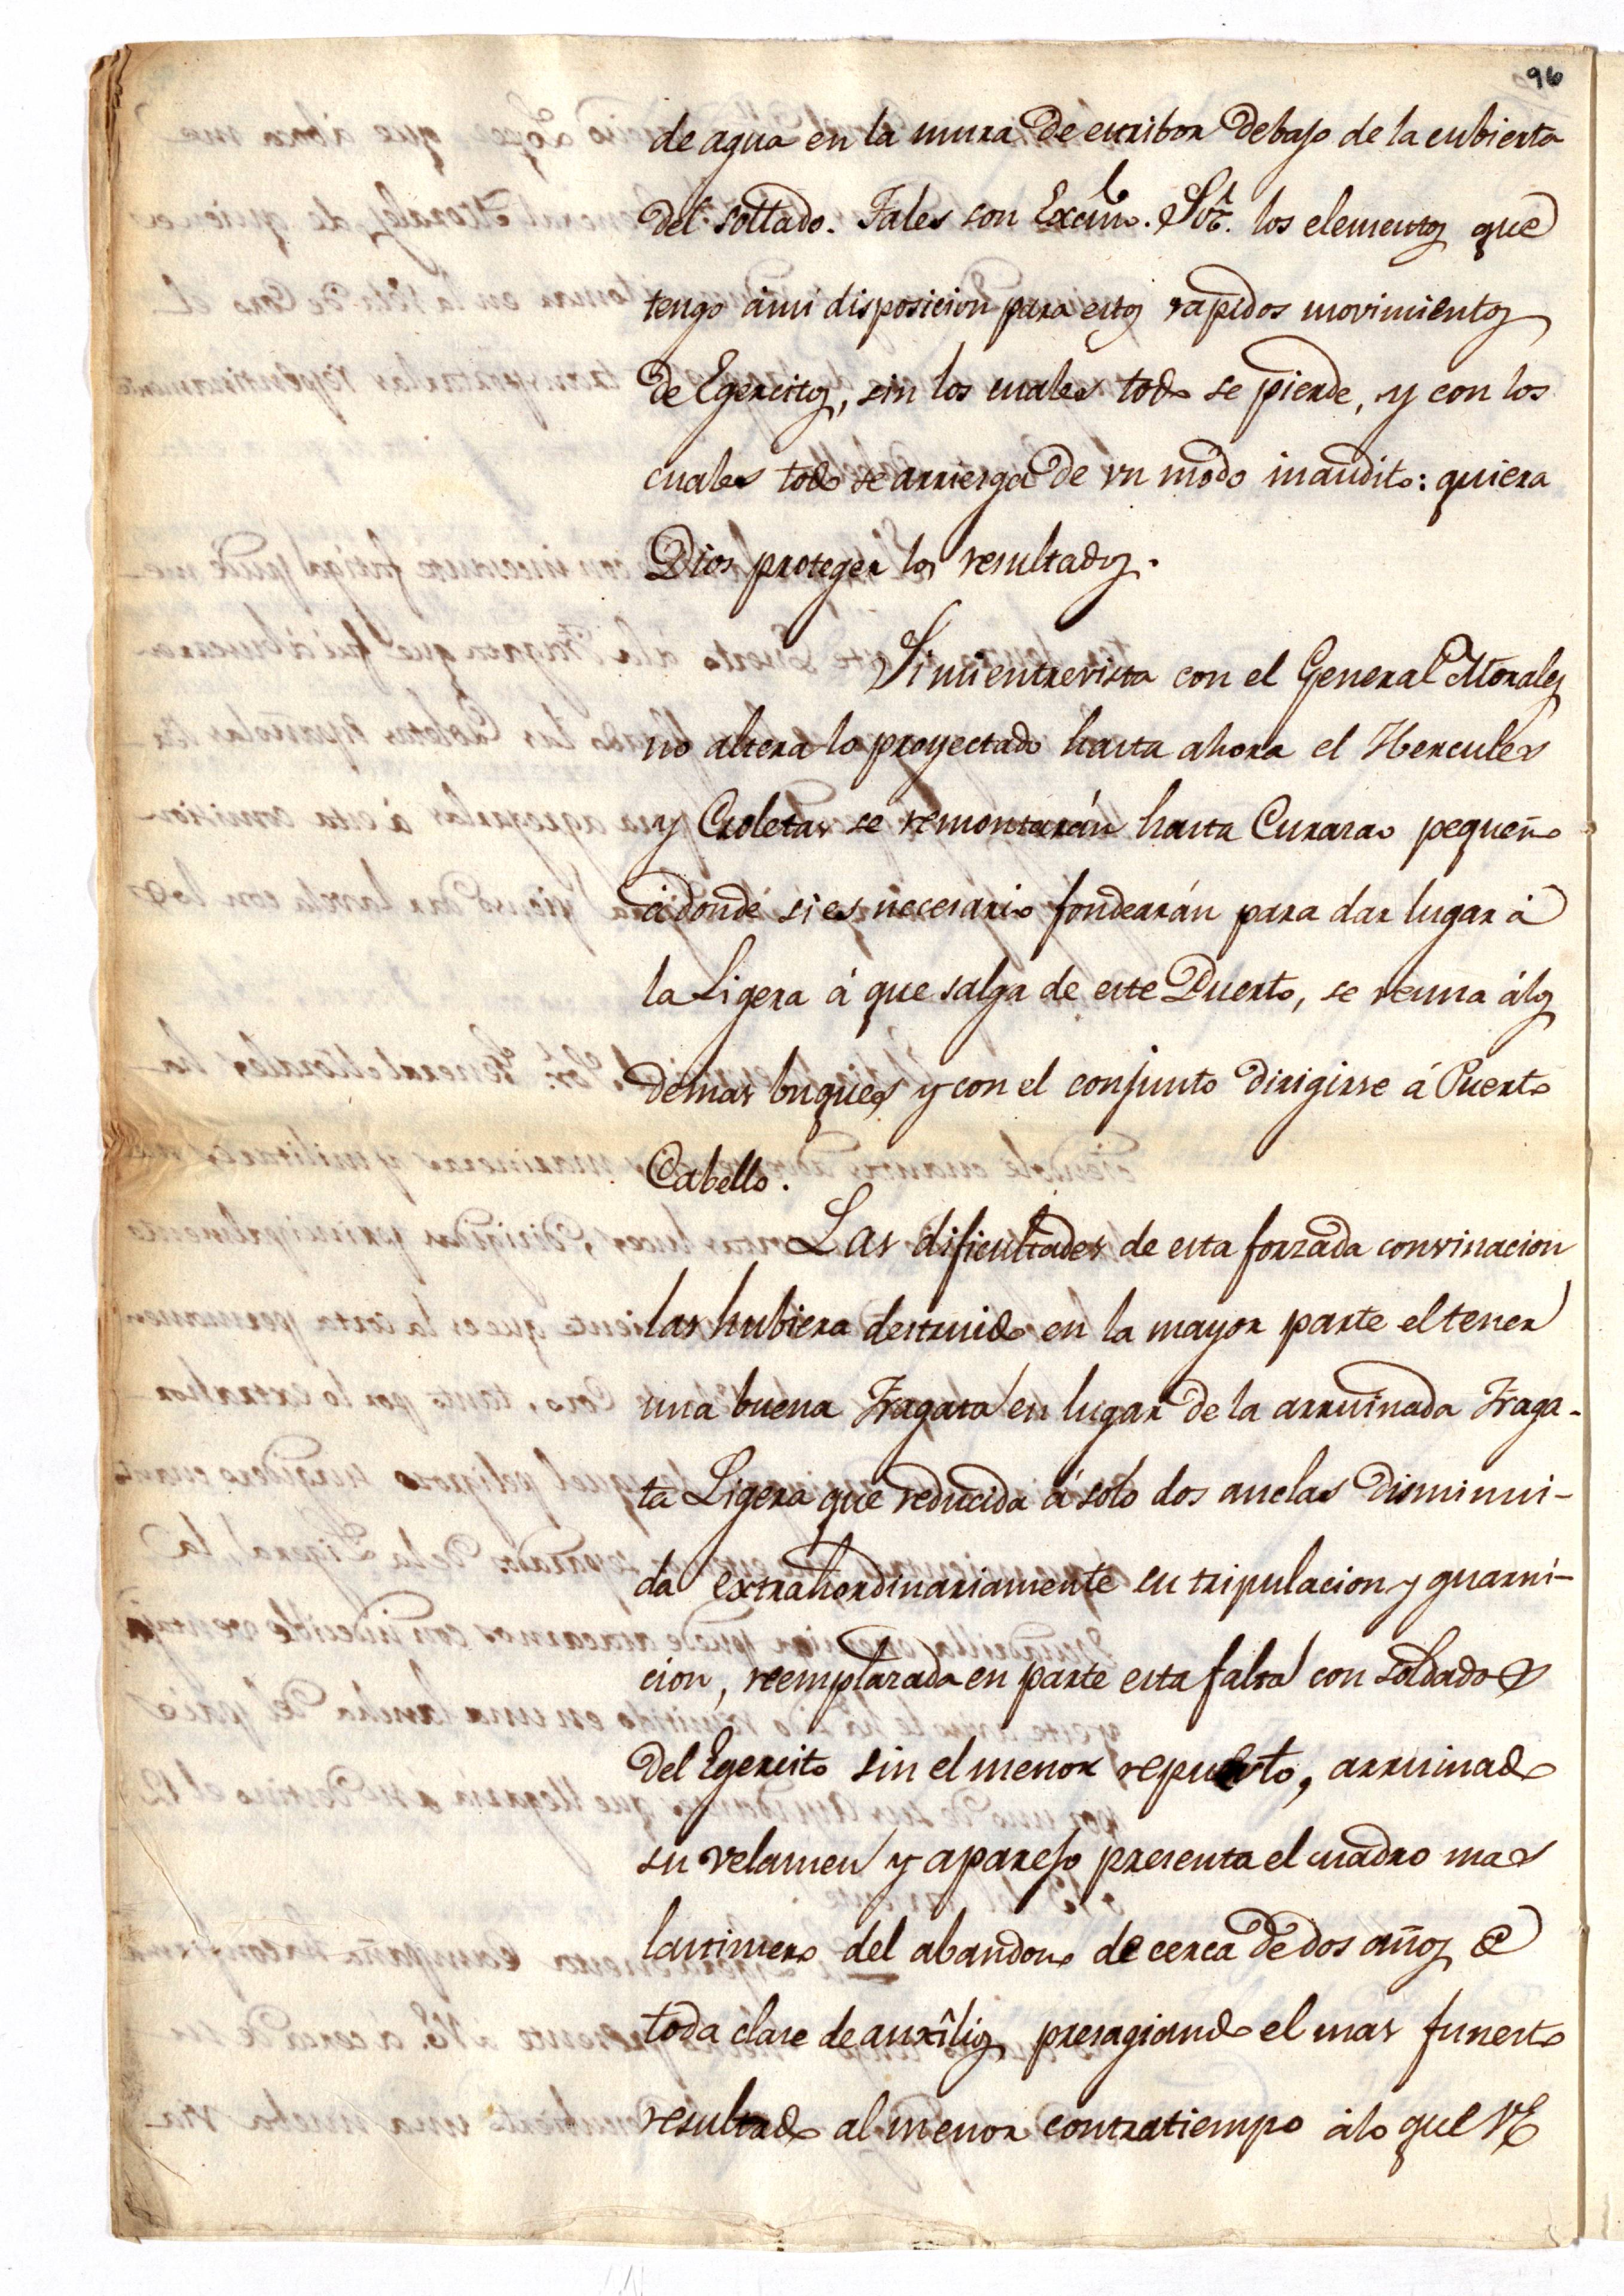 96
de agua en la mura de estribor debajo de la cubierta
del sollado. Tales son Excmo. Sor. los elementos que
tengo á mi disposicion para estos rapidos movimientos
de Egercitos, sin los cuales todo se pierde, y con los
cuales todo se arriesga de un modo inaudito: quiera
Dios proteger los resultados.
Si mi entrevista con el General Morales
no altera lo proyectado hasta ahora el Hercules
y Goletas se remontarán hasta Curasao pequeño
á donde si es necesario fondearán para dar lugar á
la Ligera á que salga de este Puerto, se reuna á los
demas buques y con el conjunto dirigirse á Puerto
Cabello.
Las dificultades de esta forzada convinacion
las hubiera destruido en la mayor parte el tener
una buena Fragata en lugar de la arruinada Fraga-
ta Ligera que reducida á solo dos anclas disminui-
da extrahordinariamente su tripulacion y guarni-
cion, reemplazada en parte esta falta con soldados
del Egercito sin el menor repuesto, arruinado
su velamen y aparejo presenta el cuadro mas
lastimero del abandono de cerca de dos años de
toda clase de auxîlios presagiando el mas funesto
resultado al menor contratiempo á lo que VE